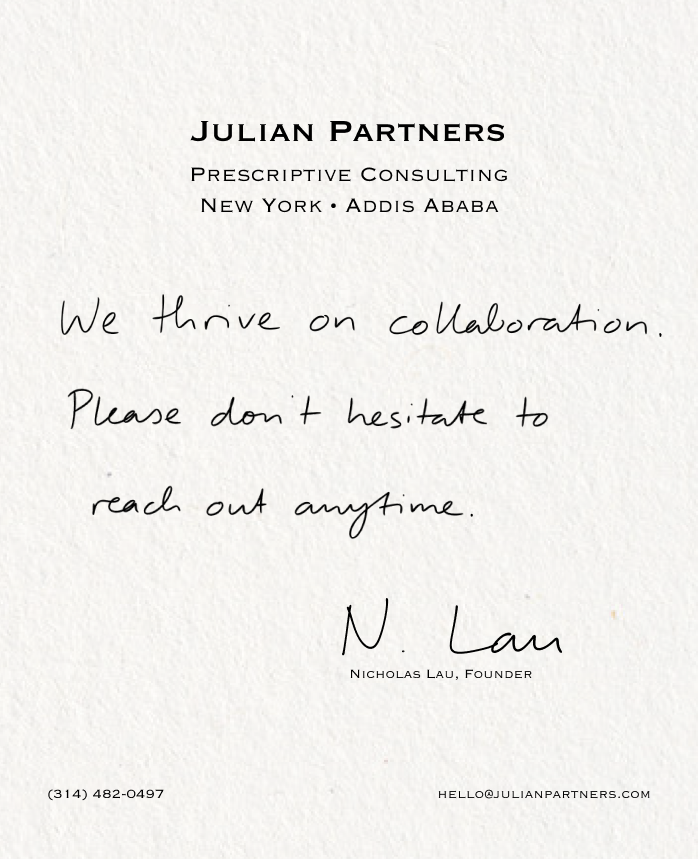 Julian Partners
Prescriptive Consulting
New York • Addis Ababa
We thrive on collaboration.
Please don't hesitate to
reach out anytime.
N. Lau
Nicholas Lau, Founder
(314) 482-0497
hello@julianpartners.com